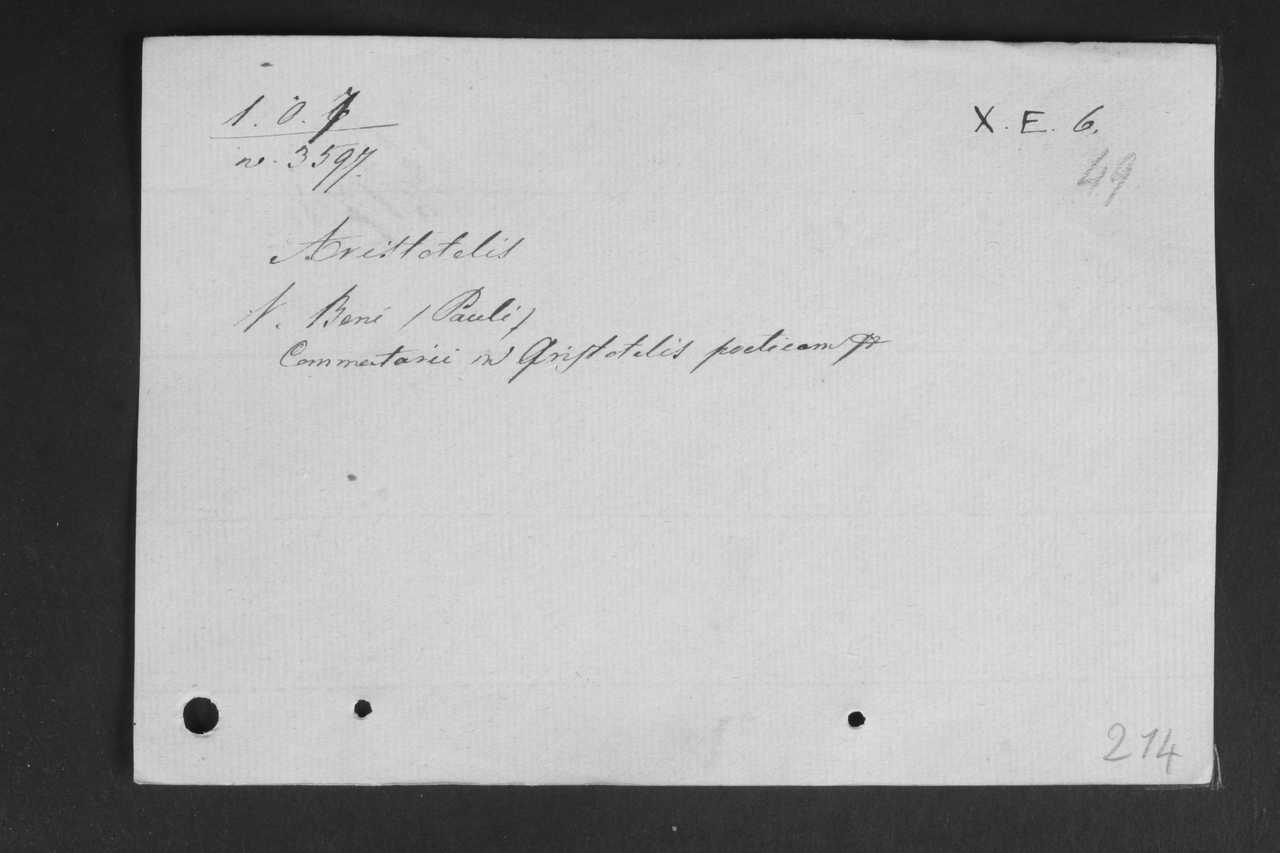 1. O. 7
X. E. 6.
n. 3597.
49
Aristotelis
V. Beni (Pauli)
Commentarii in Aristotelis poeticam
214